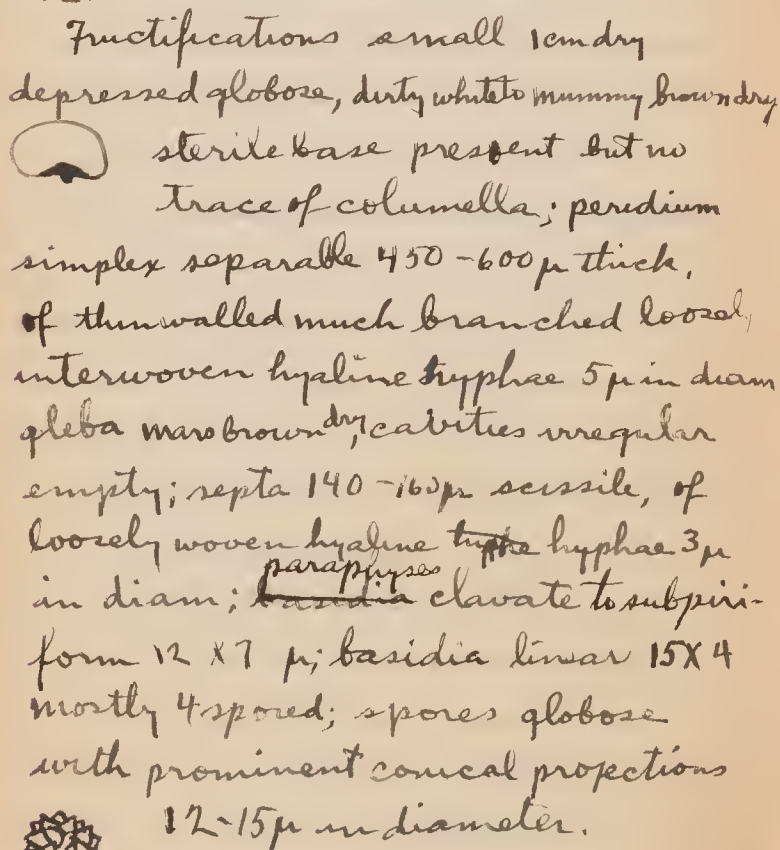 Fructifications small 1cm dry
depressed globose, dirty white to mummy brown dry
sterile base present but no
trace of columella; peridium
simplex separable 450-600µ thick,
of thin walled much branched loosely
interwoven hyaline hyphae 5µ in diam
gleba mars brown dry, cavities irregular
empty; septa 140-160µ scissile, of
loosely woven hyaline hyphae 3µ
paraphyses
in diam; basidia clavate to subpiri-
form 12 X 7 µ; basidia linear 15X4
mostly 4 spored; spores globose
with prominent conical projections
12-15µ in diameter.